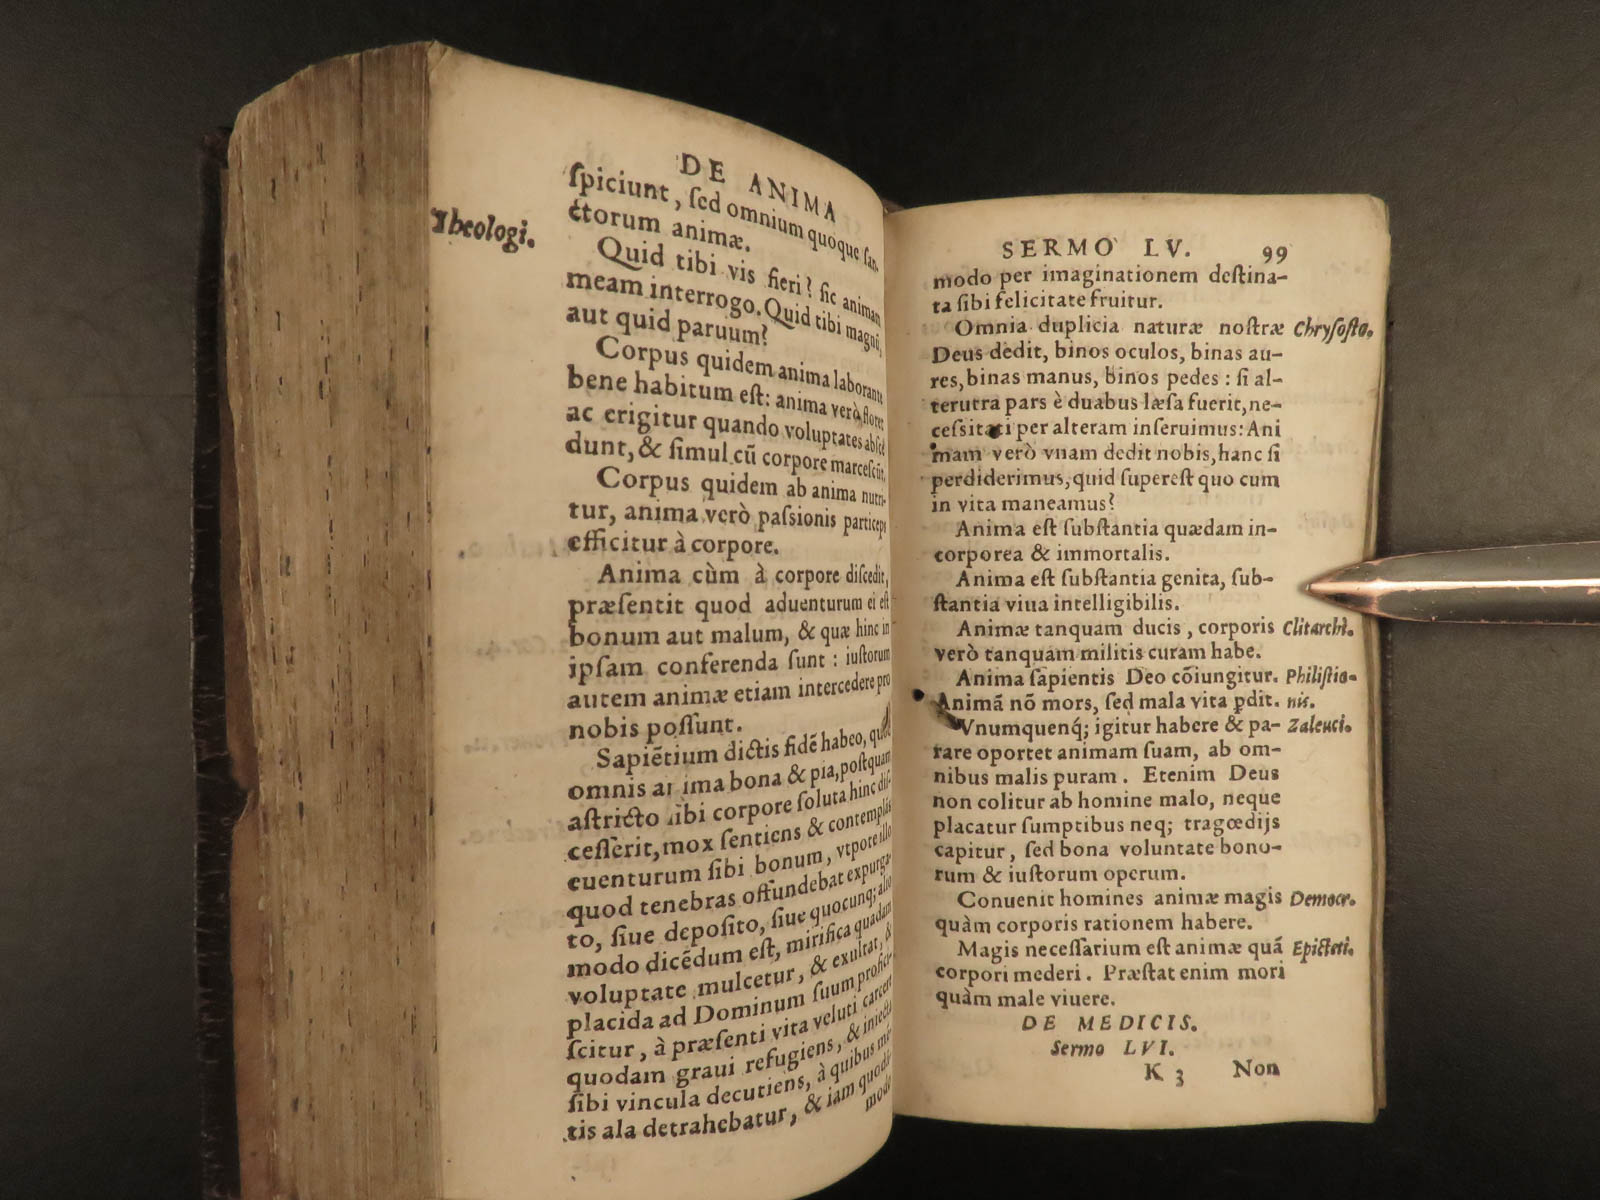 DE ANIMA
ſpiciunt, ſed omnium quoque ſan-
ctorum animæ.
Theologi.
Quid tibi vis fieri? ſic animam
meam interrogo. Quid tibi magnū,
aut quid paruum?
Corpus quidem anima laborante
bene habitum eſt: anima verò floret
ac erigitur quando voluptates abſce
dunt, & ſimul cū corpore marceſcūt.
Corpus quidem ab anima nutri-
tur, anima verò paſsionis particeps
efficitur à corpore.
Anima cùm à corpore diſcedit,
præſentit quod aduenturum ei eſt
bonum aut malum, & quæ hinc in
ipſam conferenda ſunt : iuſtorum
autem animæ etiam intercedere pro
nobis poſſunt.
Sapiētium dictis fidē habeo, quòd
omnis anima bona & pia, poſtquam
aſtricto ſibi corpore ſoluta hinc diſ-
ceſſerit, mox ſentiens & contemplās
euenturum ſibi bonum, vtpote illo
quod tenebras offundebat expurga-
to, ſiue depoſito, ſiue quocunq; alio
modo dicēdum eſt, mirifica quadam
voluptate mulcetur, & exultat, &
placida ad Dominum ſuum profici-
ſcitur, à præſenti vita veluti carcere
quodam graui refugiens, & iniecta
ſibi vincula decutiens, à quibus mē-
tis ala detrahebatur, & iam quodā-
modo
SERMO LV. 99
modo per imaginationem deſtina-
ta ſibi felicitate fruitur.
Omnia duplicia naturæ noſtræ Chryſoſto.
Deus dedit, binos oculos, binas au-
res, binas manus, binos pedes : ſi al-
terutra pars è duabus læſa fuerit, ne-
ceſsitati per alteram inſeruimus: Ani
mam verò vnam dedit nobis, hanc ſi
perdiderimus, quid ſupereſt quo cum
in vita maneamus?
Anima eſt ſubſtantia quædam in-
corporea & immortalis.
Anima eſt ſubſtantia genita, ſub-
ſtantia viua intelligibilis.
Animæ tanquam ducis, corporis Clitarchi.
verò tanquam militis curam habe.
Anima ſapientis Deo cōiungitur. Philiſtio-
Animā nō mors, ſed mala vita ꝑdit. nis.
Vnumquenq; igitur habere & pa- Zaleuci.
rare oportet animam ſuam, ab om-
nibus malis puram. Etenim Deus
non colitur ab homine malo, neque
placatur ſumptibus neq; tragœdijs
capitur, ſed bona voluntate bono-
rum & iuſtorum operum.
Conuenit homines animæ magis Democr.
quàm corporis rationem habere.
Magis neceſſarium eſt animæ quā Epicteti.
corpori mederi. Præſtat enim mori
quàm male viuere.
DE MEDICIS.
Sermo LVI.
K 3 Non